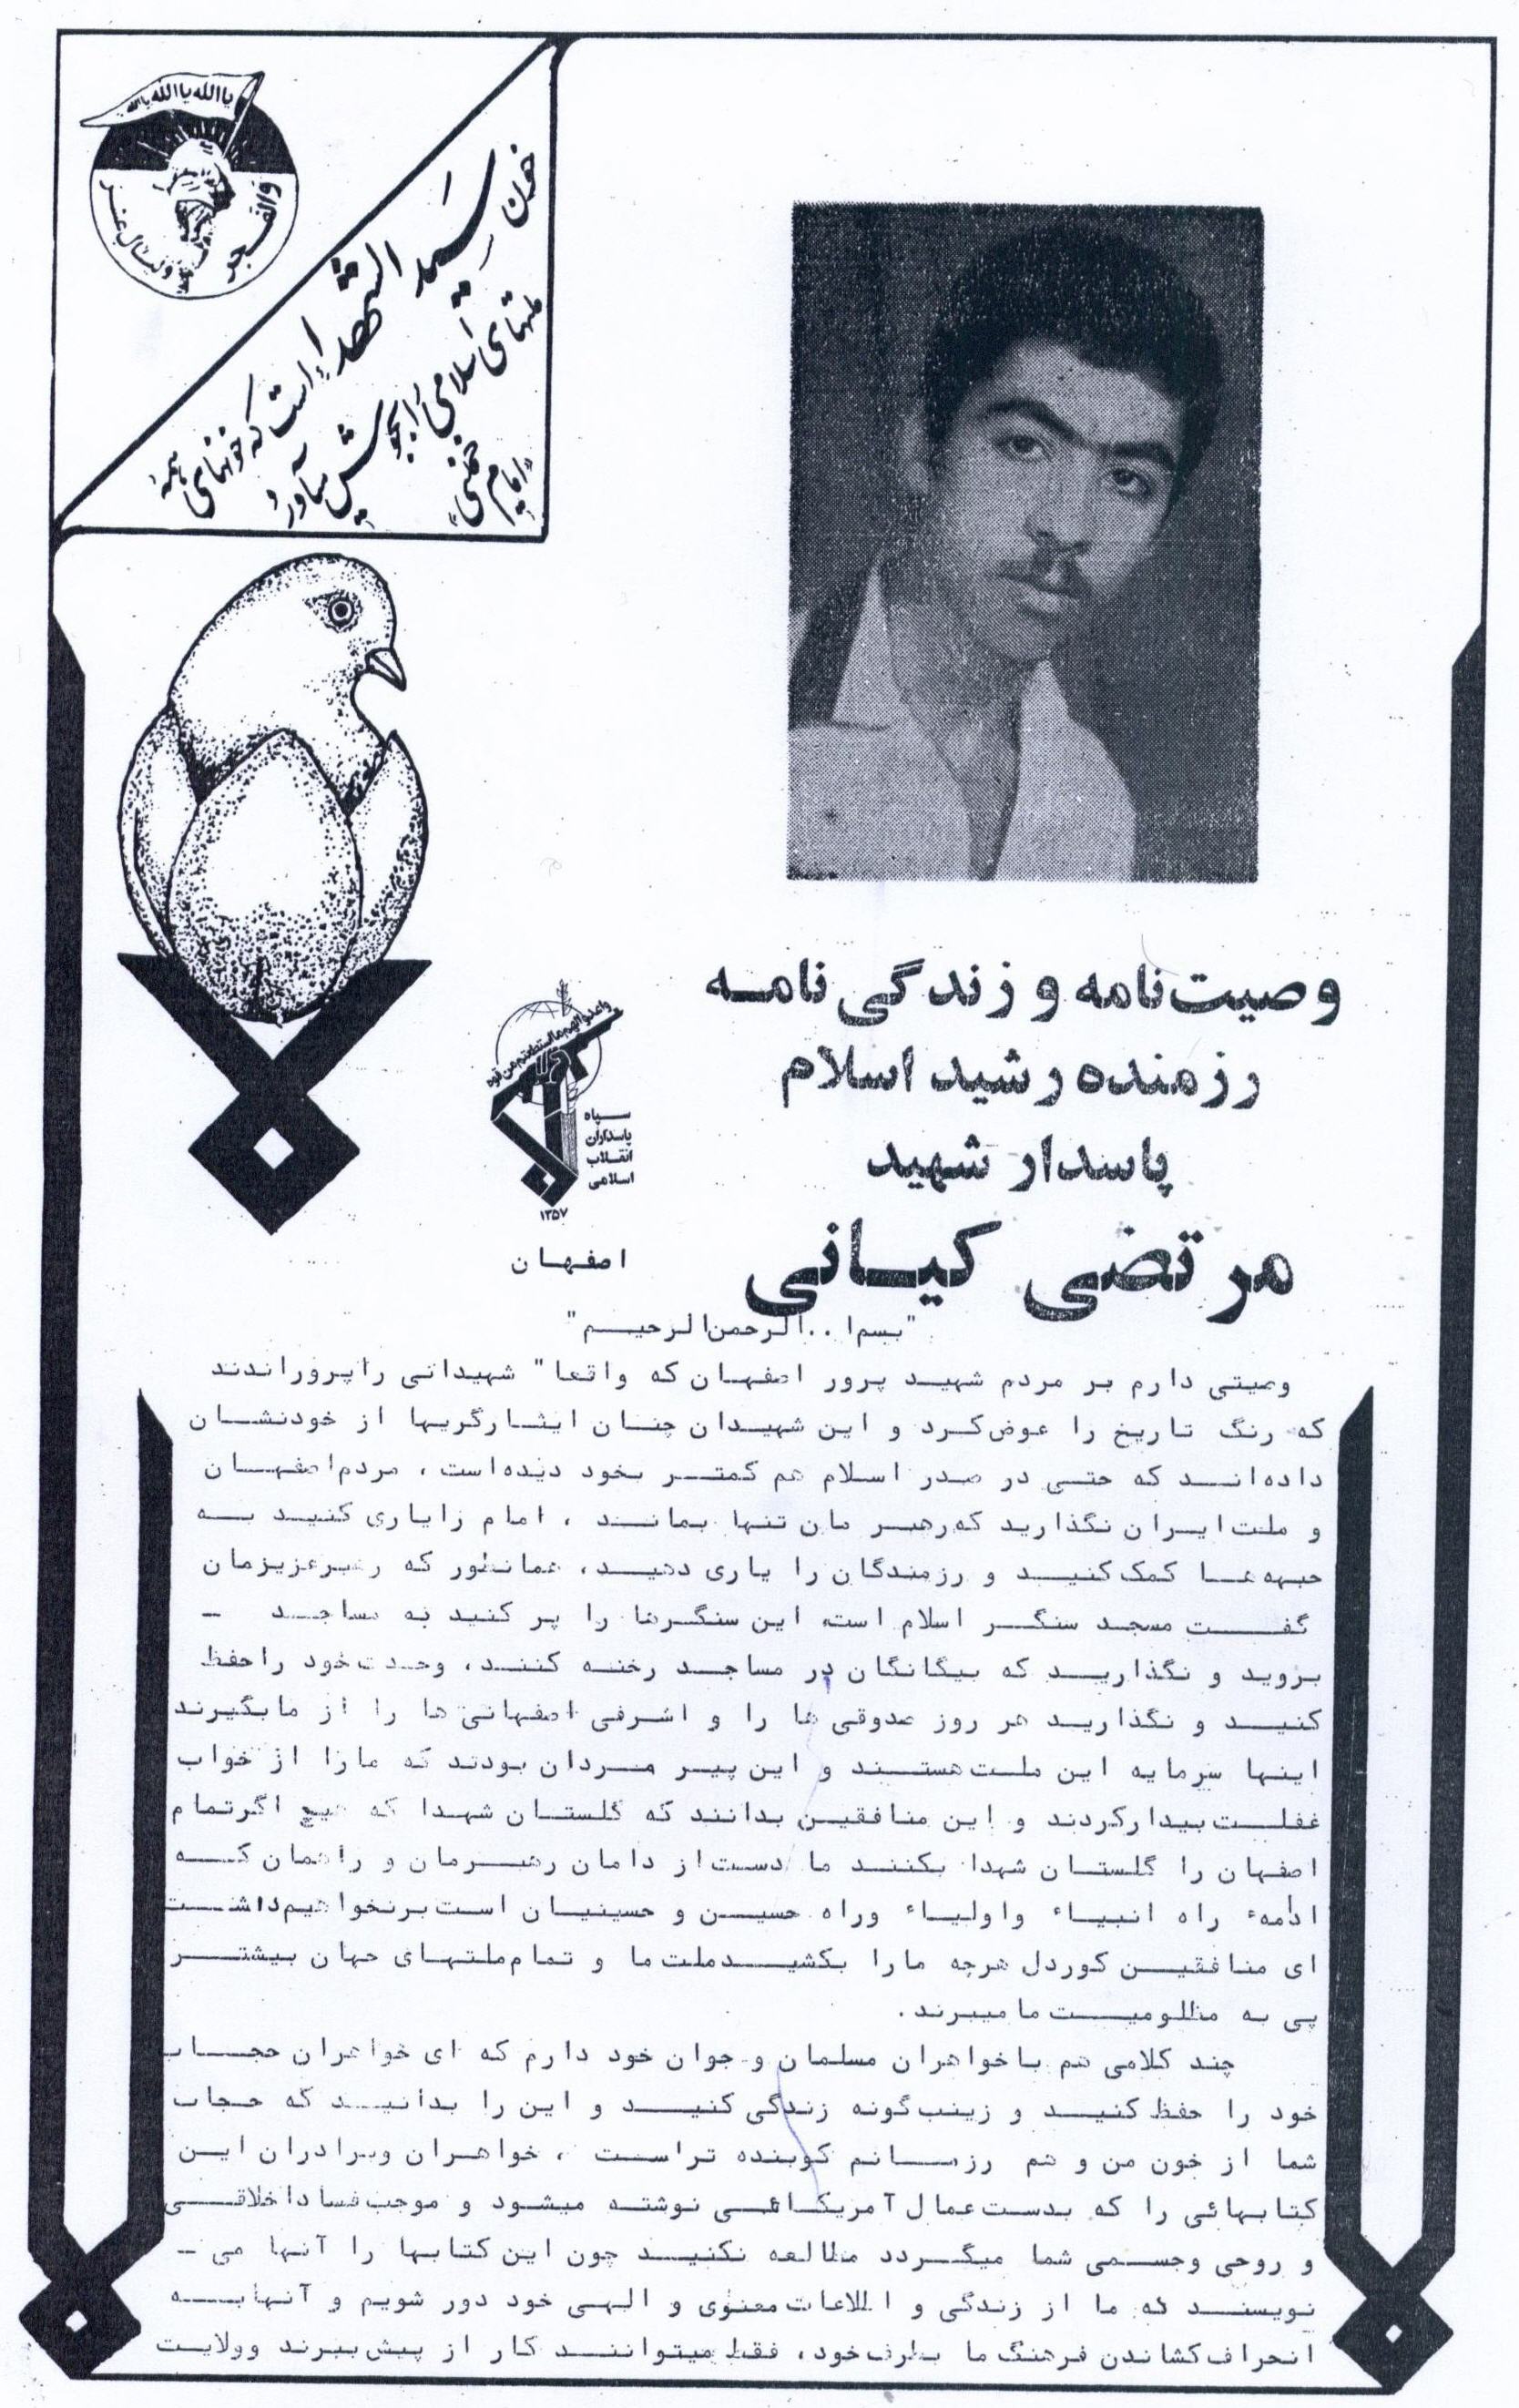 یاالله یاالله یاالله
والفجر
ولیال عشر
خون
سید الشهداء است که خونهای همهٔ
ملتهای اسلامی را بجوش میآورد
"امام خمینی"
واعدوا لهم ما استطعتم من قوه
سپاه
پاسداران
انقلاب
اسلامی
۱۳۵۷
اصفهان
وصیت‌نامه و زندگی نامه
رزمنده رشید اسلام
پاسدار شهید
مرتضی کیانی
"بسم‌ا..الرحمن‌الرحیم"
وصیتی دارم بر مردم شهید پرور اصفهان که واقعا" شهیدانی را پروراندند
که رنگ تاریخ را عوض‌کرد و این شهیدان چنان ایثارگریها از خودنشان
داده‌اند که حتی در صدر اسلام هم کمتر بخود دیده‌است، مردم اصفهان
و ملت ایران نگذارید که رهبر مان تنها بماند، امام را یاری کنید به
جبهه‌ها کمک کنید و رزمندگان را یاری دهید، همانطور که رهبر عزیزمان
گفت مسجد سنگر اسلام است، این سنگرها را پر کنید به مساجد -
بروید و نگذارید که بیگانگان در مساجد رخنه کنند، وحدت خود را حفظ
کنید و نگذارید هر روز صدوقی ها را و اشرفی اصفهانی ها را از ما بگیرند
اینها سرمایه این ملت هستند و این پیر مردان بودند که ما را از خواب
غفلت بیدار کردند و این منافقین بدانند که گلستان شهدا که هیچ اگر تمام
اصفهان را گلستان شهدا بکنند ما دست از دامان رهبرمان و راهمان که
ادامهٔ راه انبیاء و اولیاء و راه حسین و حسینیان است برنخواهیم داشت
ای منافقین کوردل هرچه ما را بکشید ملت ما و تمام ملتهای جهان بیشتر
پی به مظلومیت ما میبرند.
چند کلامی هم با خواهران مسلمان و جوان خود دارم که ای خواهران حجاب
خود را حفظ کنید و زینب گونه زندگی کنید و این را بدانید که حجاب
شما از خون من و هم رزمانم کوبنده تر است، خواهران و برادران این
کتابهائی را که بدست عمال آمریکائی نوشته میشود و موجب فساد اخلاقی
و روحی و جسمی شما میگردد مطالعه نکنید چون این کتابها را آنها می -
نویسند که ما از زندگی و اطلاعات معنوی و الهی خود دور شویم و آنها به
انحراف کشاندن فرهنگ ما بطرف خود، فقط میتوانند کار از پیش ببرند و ولایت